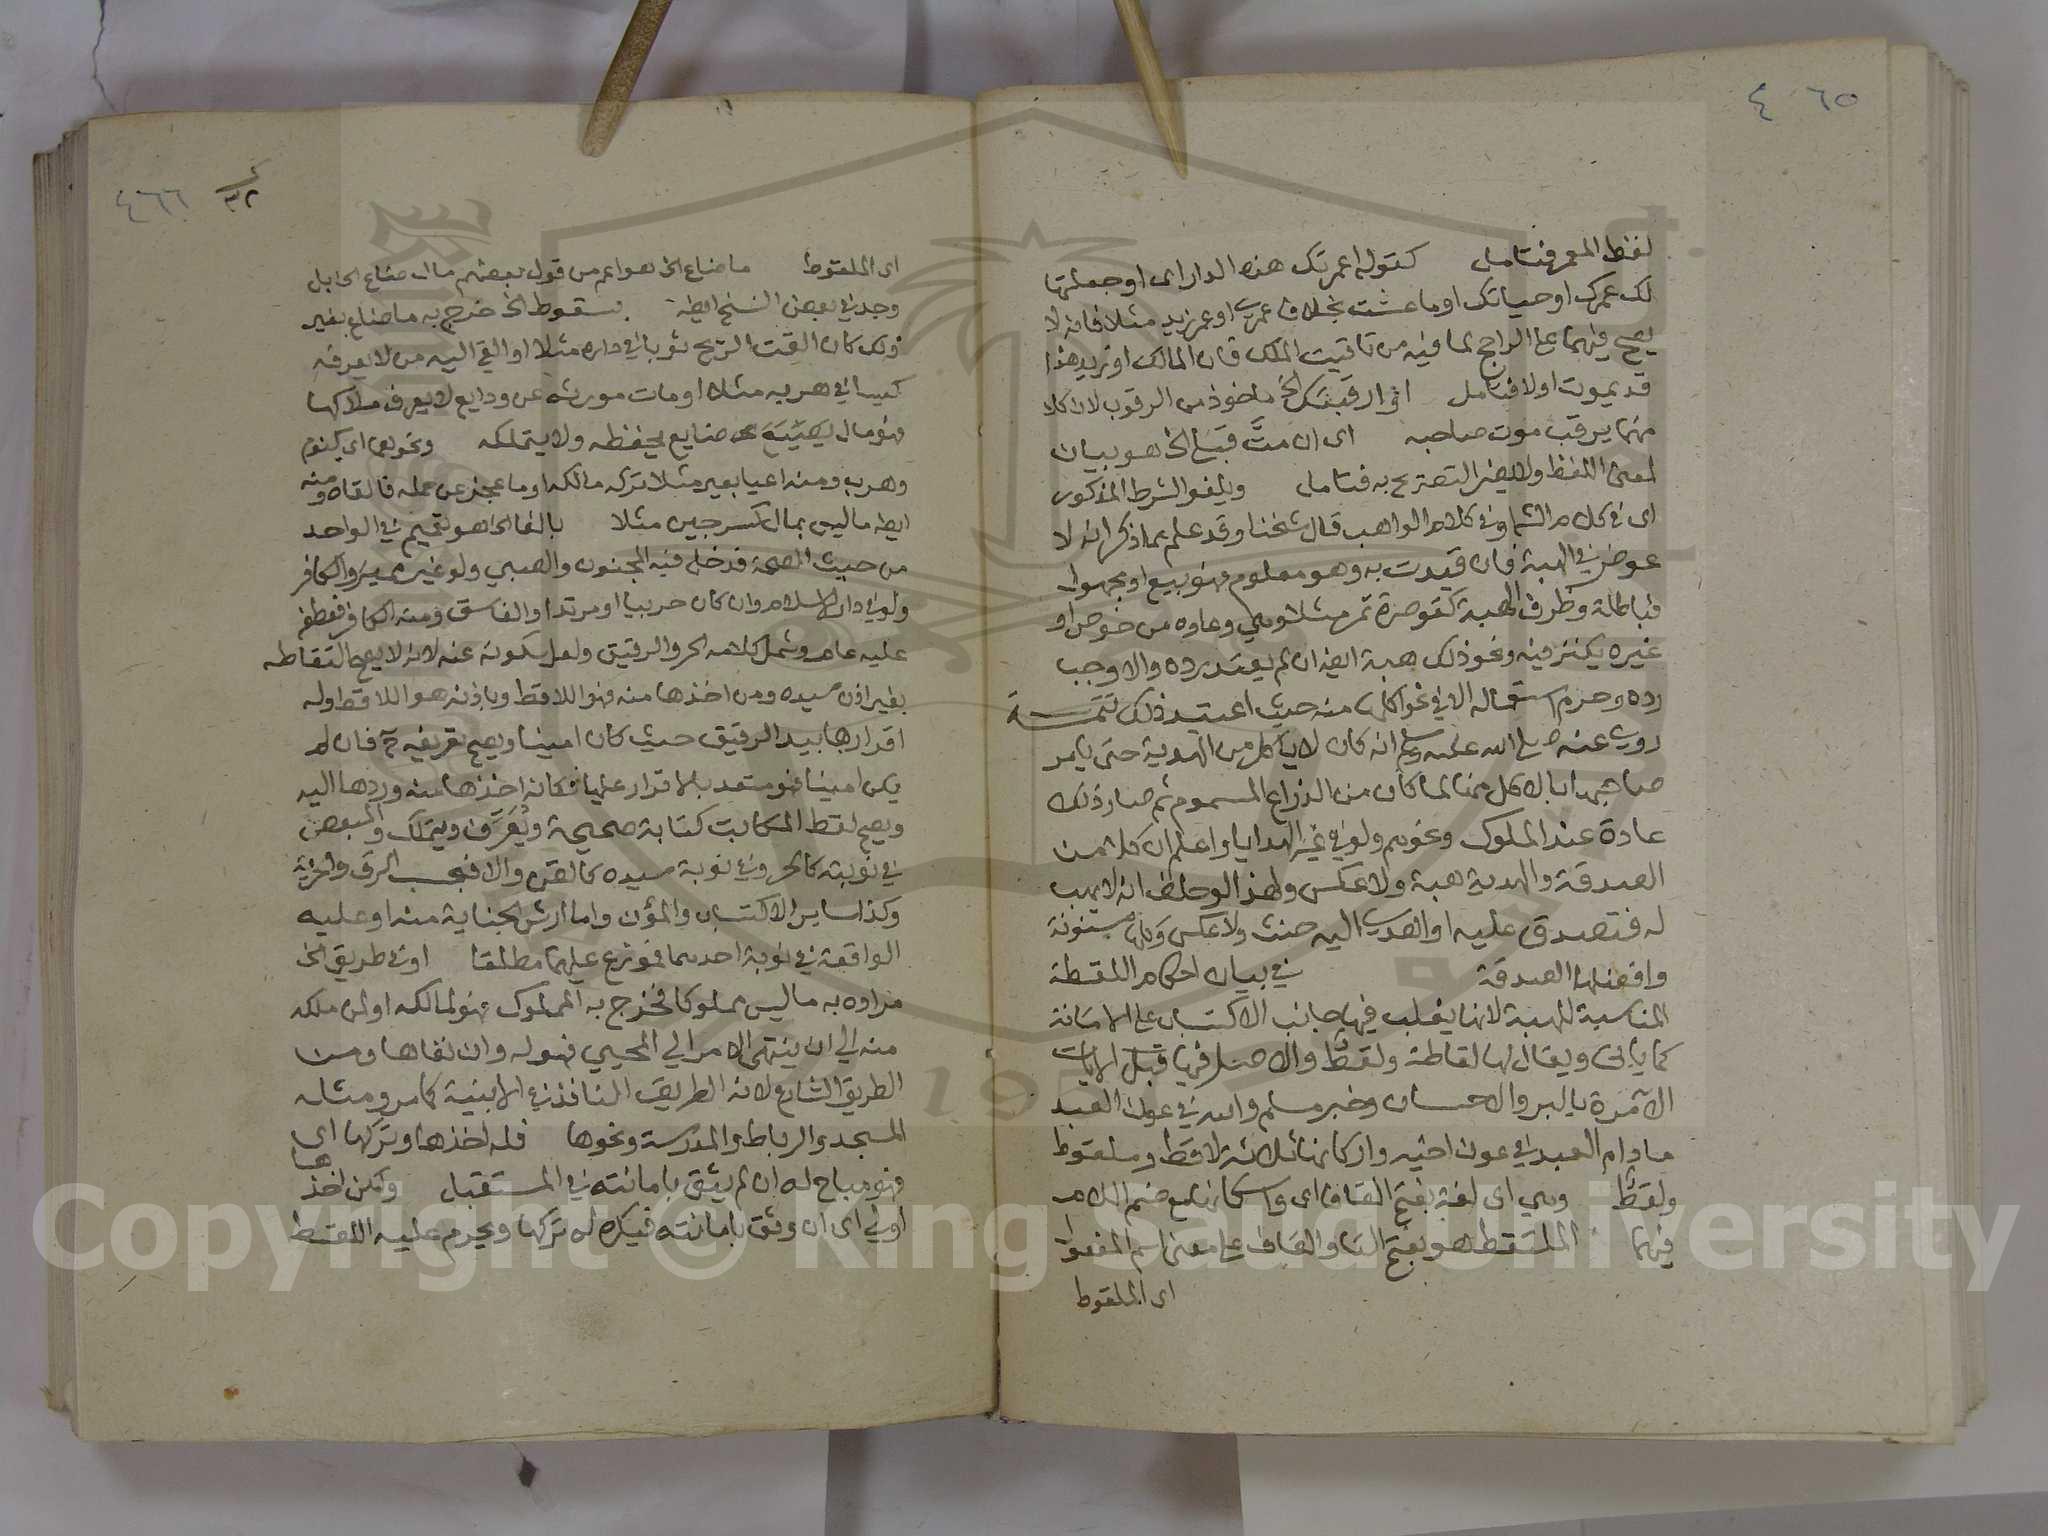 ٤٦٥
لفظ المعمر فتامل كقوله اعمرتك هذه الدار اى او جعلتها
لك عمرك او حياتك او ما عشت بخلاف عمرى او عمر زيد مثلا فانه لا
يصح فيهما على الراجح لما فيه من تاقيت الملك فان المالك او زيد هذا
قد يموت اولا فتامل او ارقبتك الخ ماخوذ من الرقوب لان كلا
منهما يرقب موت صاحبه اى ان مت قبلى الخ هو بيان
لمعنى اللفظ ولا يضر التصريح به فتامل ويلغو الشرط المذكور
اى فى كلام الشارح وفى كلام الواهب قال شيخنا وقد علم مما ذكر انه لا
عوض فى الهبة فان قيدت به وهو معلوم فهو بيع او مجهول
فباطلة وظرف الهبة كقوصرة تمر مثلا وهى وعاوه من خوص او
غيره يكنز فيه ونحو ذلك هبة ايضا ان لم يعتد رده والا وجب
رده وحرم استعماله الا فى نحو اكل منه حيث اعتيد ذلك تتمة
روى عنه صلى الله عليه وسلم انه كان لا ياكل من الهدية حتى يامر
صاحبها بالاكل منها لما كان من الذراع المسموم ثم صار ذلك
عادة عند الملوك ونحوهم ولو فى غير الهدايا واعلم ان كلا من
الصدقة والهدية هبة ولا عكس ولهذا لو حلف انه لا يهب
له فتصدق عليه او اهدى اليه حنث ولا عكس وكلها مسنونة
وافضلها الصدقة فى بيان احكام اللقطة
المناسبة للهبة لانها يغلب فيها جانب الاكتساب على الامانة
كما ياتى ويقال لها لقاطة ولقط والاصل فيها قبل الايات
الآمرة بالبر والاحسان وخبر مسلم والله فى عون العبد
ما دام العبد فى عون اخيه واركانها ثلاثة لاقط وملقوط
ولقط وهى اى لغة بفتح القاف اى واسكانها مع ضم اللام
فيهما الملتقط هو بفتح التاء والقاف على معنى اسم المفعول
اى الملقوط
٤٦٦
اى الملقوط ما ضاع الخ هو اعم من قول بعضهم مال ضاع الخ بل
وجد فى بعض النسخ ايضا بسقوط الخ خرج به ما ضاع بغير
ذلك كان القت الريح ثوبا فى داره مثلا او القى اليه من لا يعرفه
كيسا فى هربه مثلا او مات مورثه عن ودايع لا يعرف ملاكها
فهو مال ضايع يحفظه ولا يتملكه ونحوهما اى كنوم
وهرب ومنه اعيا بعير مثلا تركه مالكه او ما عجز عن حمله فالقاه ومنه
ايضا ما ليس بمال كسرجين مثلا بالغا الخ هو تعميم فى الواحد
من حيث الصحة فدخل فيه المجنون والصبى ولو غير مميز والكافر
ولو فى دار الاسلام وان كان حربيا او مرتدا والفاسق ومنه الكافر فعطفه
عليه عام وشمل كلامه الحر والرقيق ولعل سكوته عنه لانه لا يصح التقاطه
بغير اذن سيده ومن اخذها منه فهو اللاقط وباذنه هو اللاقط وله
اقرارها بيد الرقيق حيث كان امينا ويصح تعريفه ح فان لم
يكن امينا فهو متعد بالاقرار عليها فكانه اخذها منه وردها اليه
ويصح لقط المكاتب كتابة صحيحة ويعرف ويتملك والمبعض
فى نوبته كالحر وفى نوبة سيده كالقن والا فبحسب الرق والحرية
وكذا ساير الاكتساب والمؤن واما ارش الجناية منه او عليه
الواقعة فى نوبة احدهما فموزع عليهما مطلقا او فى طريق الخ
مراده به ما ليس مملوكا فخرج به المملوك فهو لمالكه او لمن ملكه
منه الى ان ينتهى الامر الى المحيى فهو له وان نفاها ومن
الطريق الشارع لانه الطريق النافذ فى الابنية كما مر ومثله
المسجد والرباط والمدرسة ونحوها فله اخذها وتركها اى
فهو مباح له ان لم يثق بامانته فى المستقبل ولكن اخذها
اولى اى ان وثق بامانته فيكره له تركها ويحرم عليه اللقط
Copyright © King Saud University